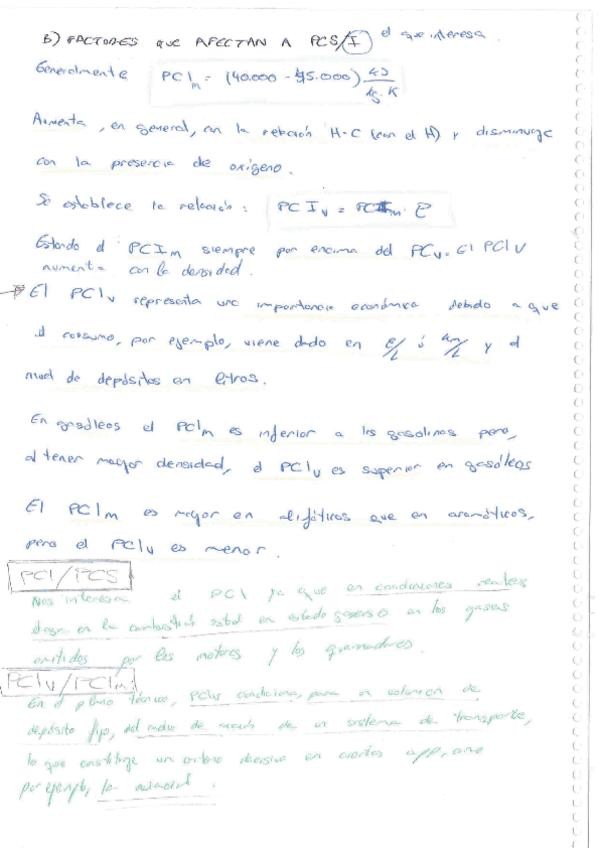 B) FACTORES QUE AFECTAN A PCS/I el que interesa.
Generalmente PCIm = (40.000 - 45.000) kJ/kg·K
Aumenta, en general, con la relación H-C (con el H) y disminuye
con la presencia de oxígeno.
Se establece la relación: PCIv = PCIm · ρ
Estando el PCIm siempre por encima del PCv. El PCIv
aumenta con la densidad.
→ El PCIv representa una importancia económica debido a que
el consumo, por ejemplo, viene dado en €/L ó km/L y el
nivel de depósitos en litros.
En gasóleos el PCIm es inferior a las gasolinas pero,
al tener mayor densidad, el PCIv es superior en gasóleos
El PCIm es mayor en alifáticos que en aromáticos,
pero el PCIv es menor.
PCI/PCS
Nos interesa el PCI ya que en condiciones reales
en la en estado gaseoso en los gases
emitidos por los motores y los quemadores.
PCIv/PCIm
En el plano técnico, PCIv condiciona, para un volumen de
depósito fijo, del radio de acción de un sistema de transporte,
lo que constituye un criterio decisivo en ciertas app, como
por ejemplo, la aviación.